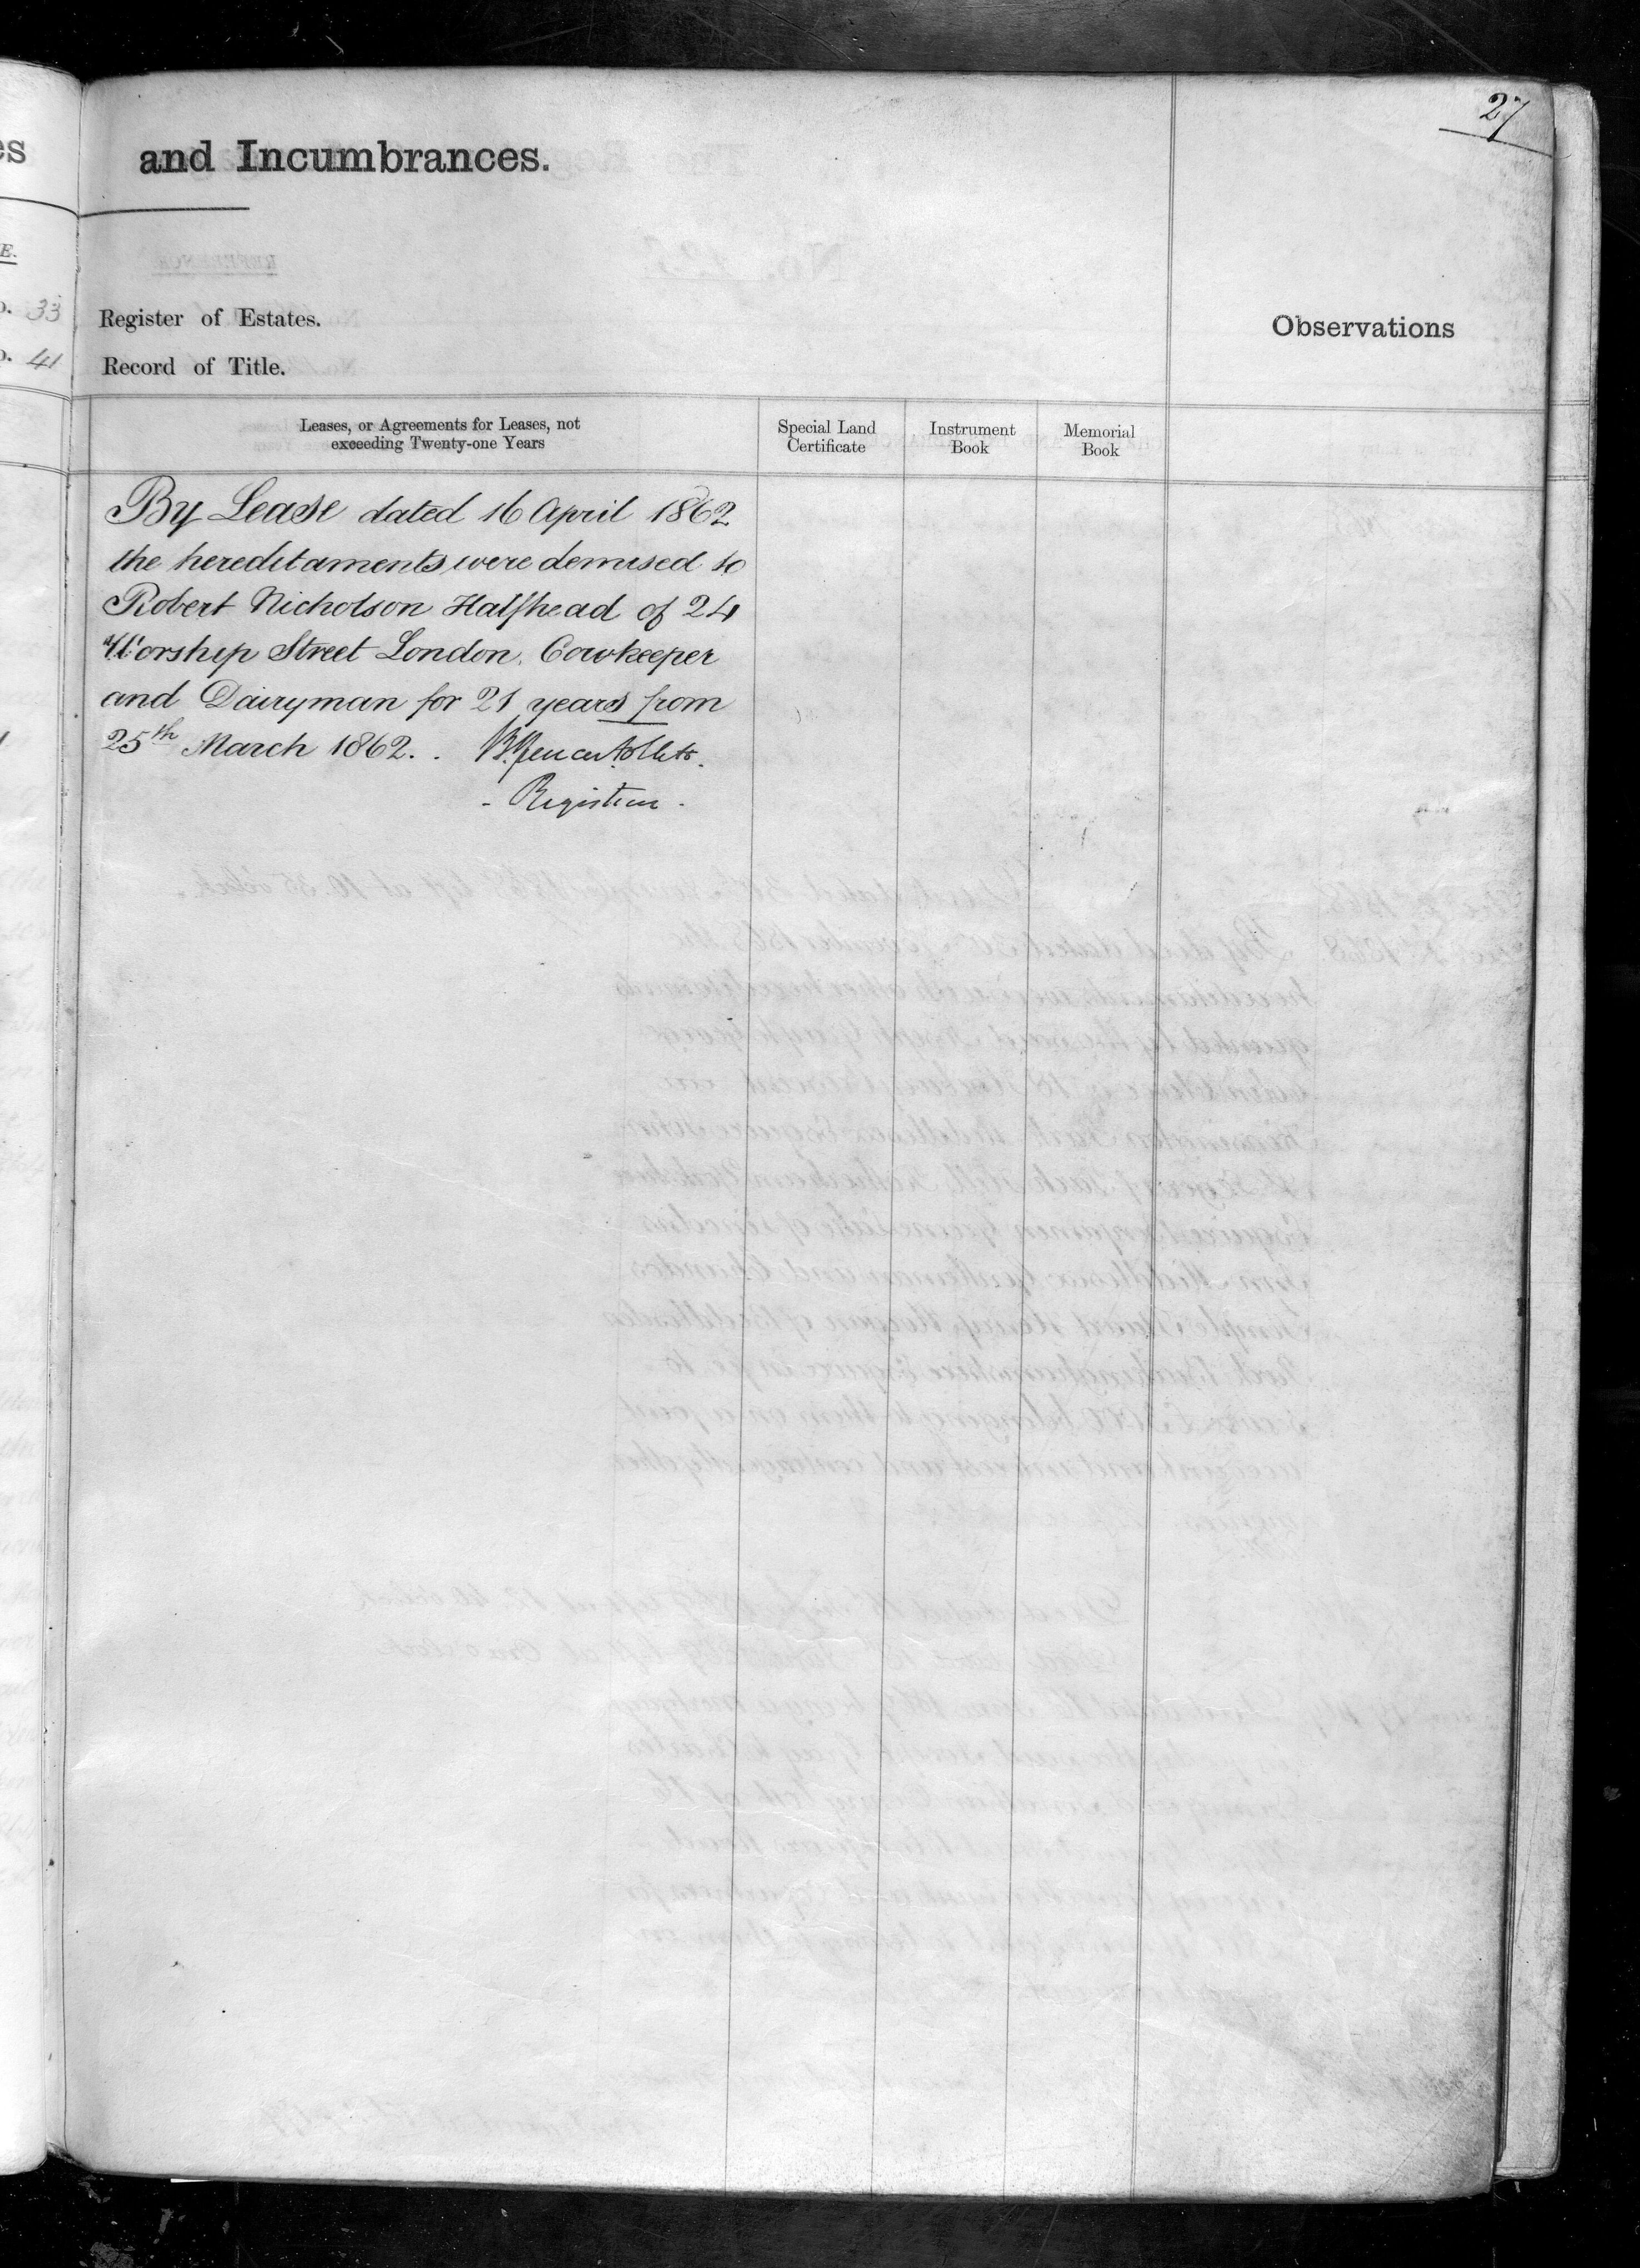 27
and Incumbrances.
E.
33 Register of Estates.
41 Record of Title.
Observations
Leases, or Agreements for Leases, not
exceeding Twenty-one Years
Special Land
Certificate
Instrument
Book
Memorial
Book
By Lease dated 16 April 1862
the hereditaments were demised to
Robert Nicholson Halfhead of 24
Worship Street London. Cowkeeper
and Dairyman for 21 years from
25th March 1862. .
- Registrar -